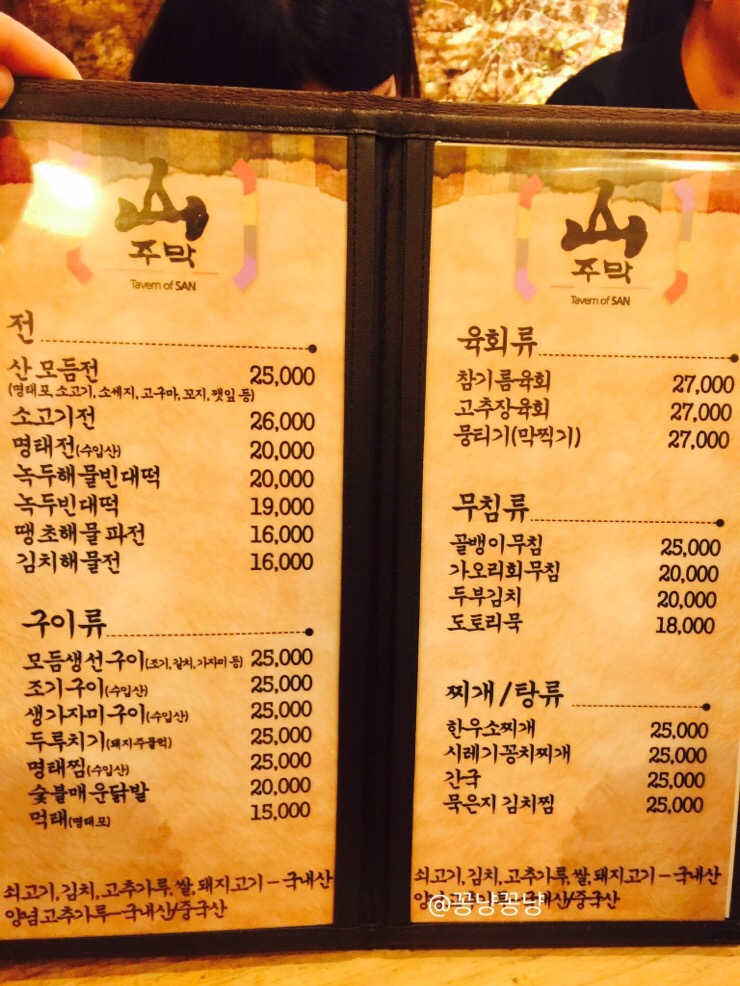 山
주막
Tavern of SAN
전
산 모듬전 25,000
(명태포, 소고기, 소세지, 고구마, 꼬지, 깻잎 등)
소고기전 26,000
명태전(수입산) 20,000
녹두해물빈대떡 20,000
녹두빈대떡 19,000
땡초해물파전 16,000
김치해물전 16,000
구이류
모듬생선구이(조기, 갈치, 가자미 등) 25,000
조기구이(수입산) 25,000
생가자미구이(수입산) 25,000
두루치기(돼지주물럭) 25,000
명태찜(수입산) 25,000
숯불매운닭발 20,000
먹태(명태포) 15,000
쇠고기, 김치, 고추가루, 쌀, 돼지고기 - 국내산
양념고추가루-국내산/중국산
山
주막
Tavern of SAN
육회류
참기름육회 27,000
고추장육회 27,000
뭉티기(막찍기) 27,000
무침류
골뱅이무침 25,000
가오리회무침 20,000
두부김치 20,000
도토리묵 18,000
찌개/탕류
한우소찌개 25,000
시레기꽁치찌개 25,000
간국 25,000
묵은지 김치찜 25,000
쇠고기, 김치, 고추가루, 쌀, 돼지고기 - 국내산
국내산/중국산
@꽁냥꽁냥